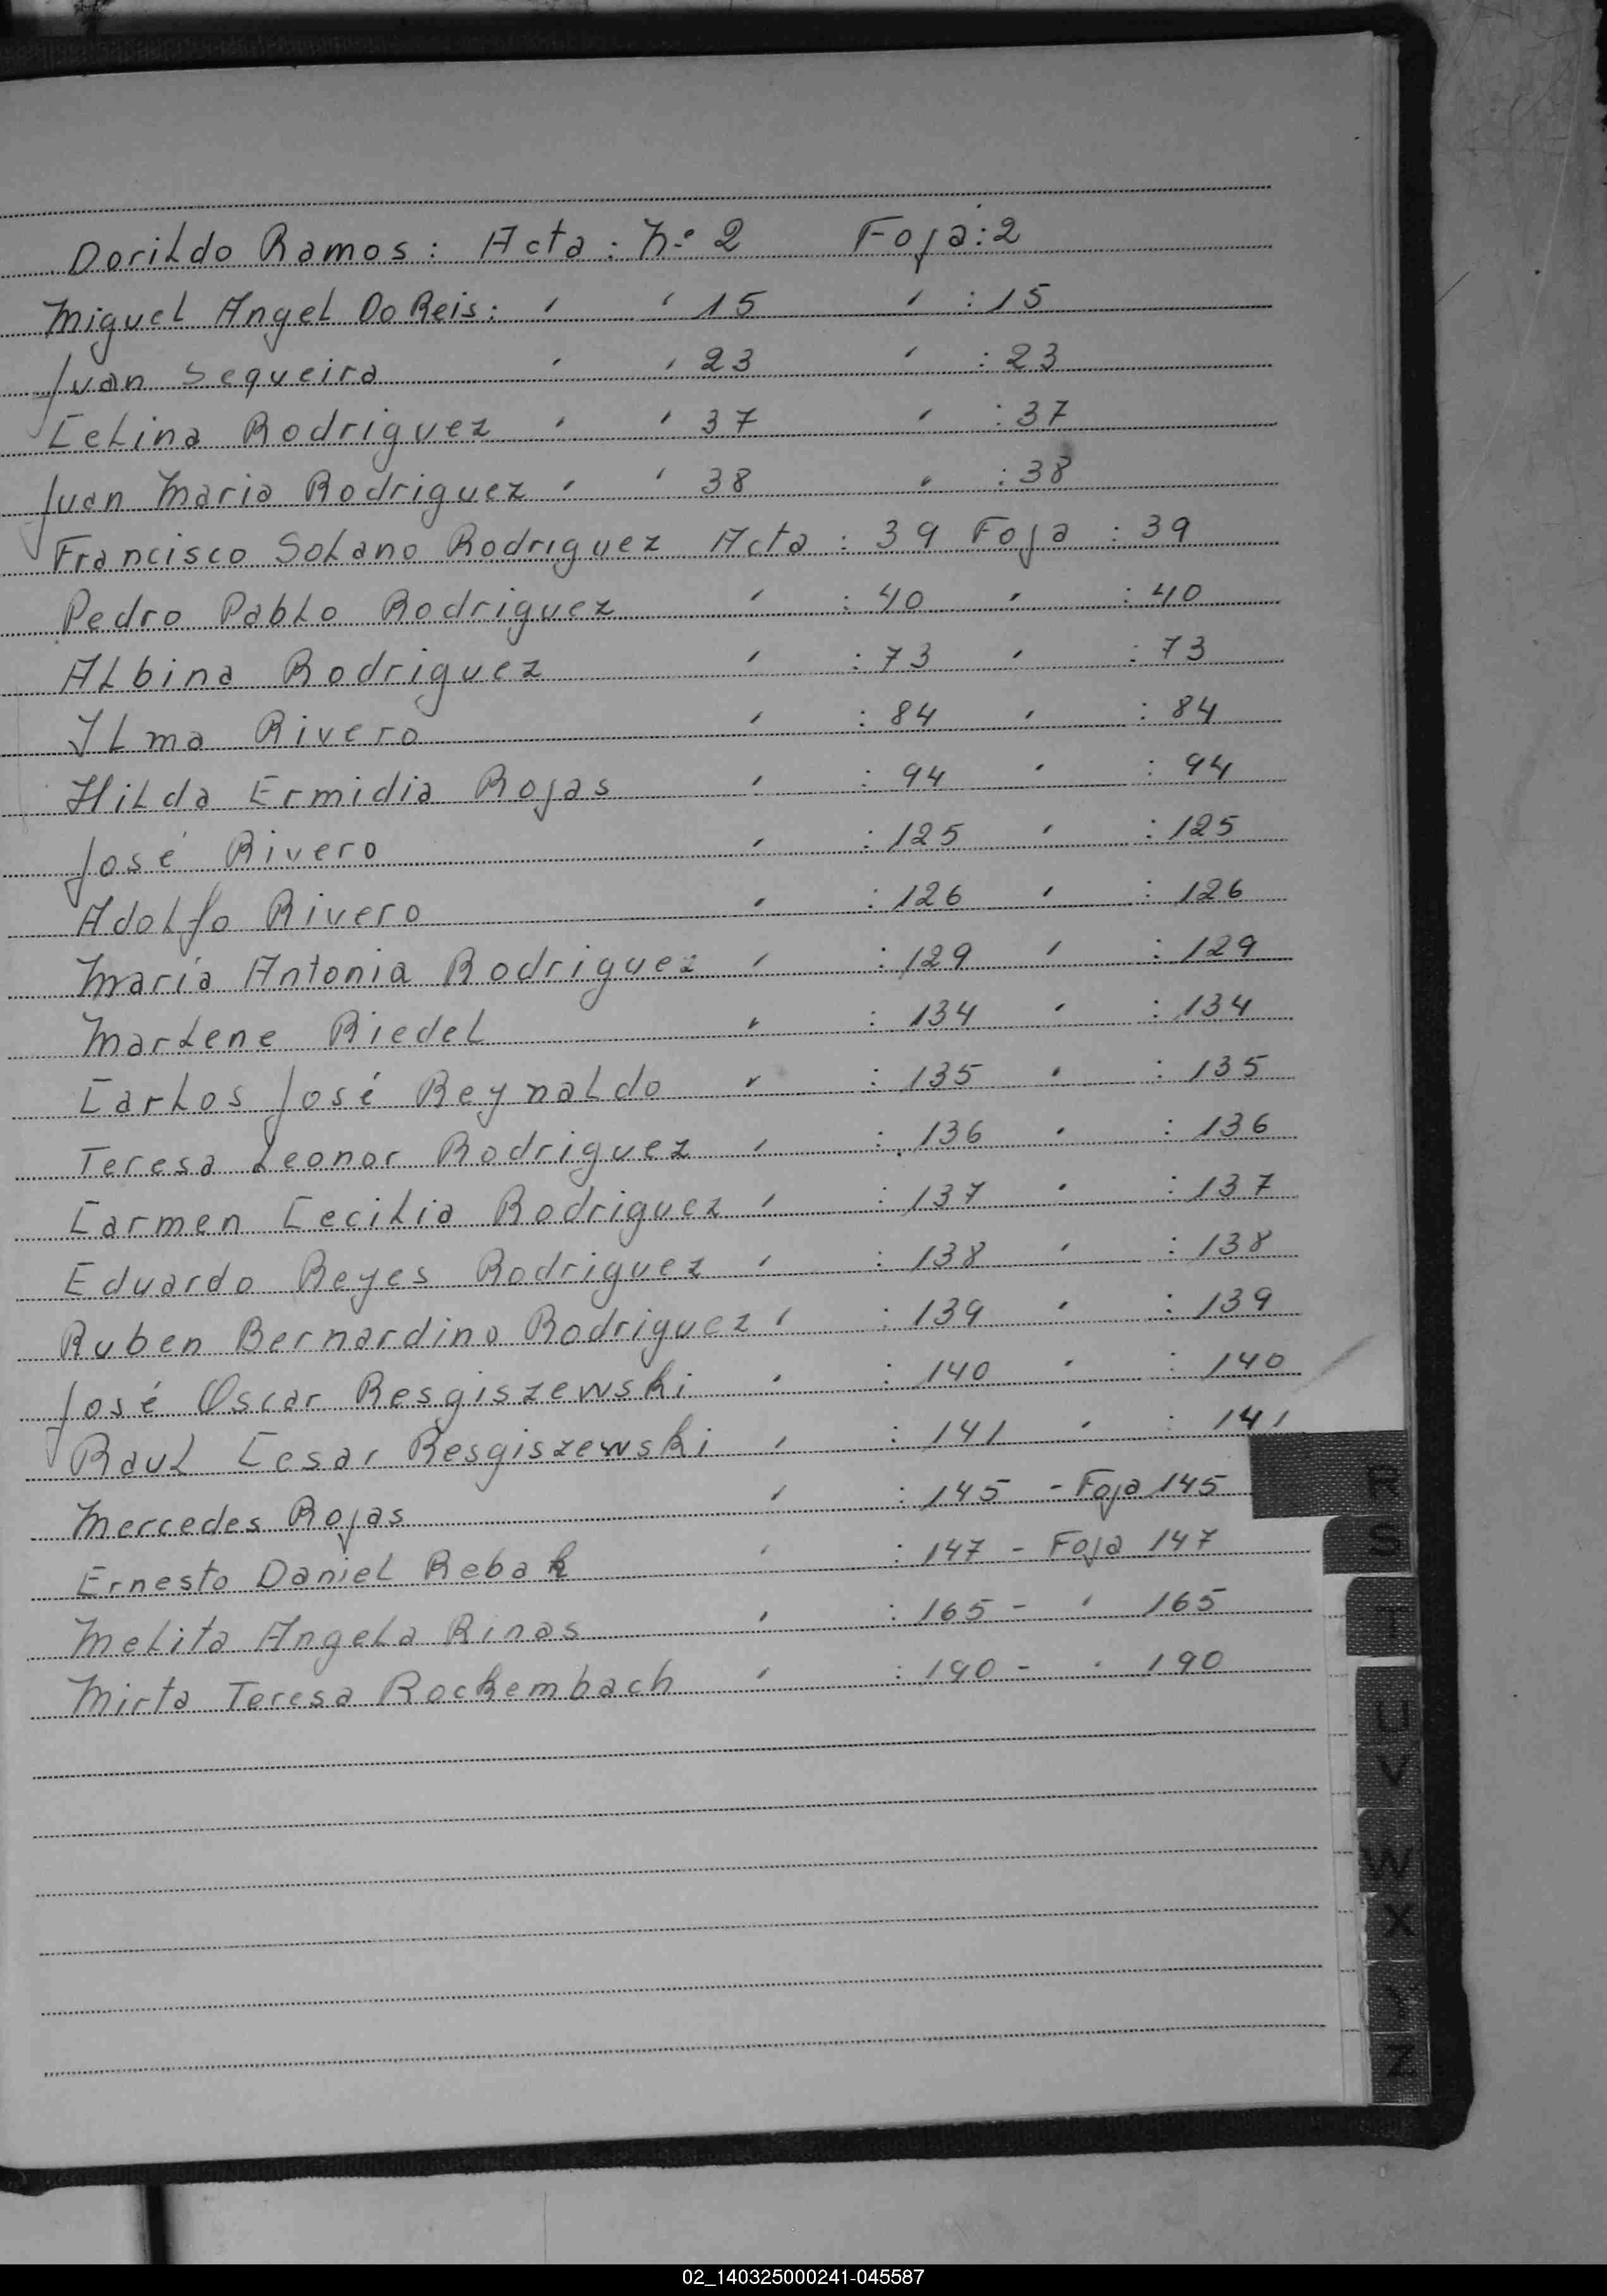 Dorildo Ramos: Acta: Nº 2 Foja: 2
Miguel Angel Do Reis: " " 15 " : 15
Juan Sequeira " " 23 " : 23
Celina Rodriguez " " 37 " : 37
Juan Maria Rodriguez " " 38 " : 38
Francisco Solano Rodriguez Acta : 39 Foja : 39
Pedro Pablo Rodriguez " : 40 " : 40
Albina Rodriguez " : 73 " : 73
Ilma Rivero " : 84 " : 84
Hilda Ermidia Rojas " : 94 " : 94
José Rivero " : 125 " : 125
Adolfo Rivero " : 126 " : 126
María Antonia Rodriguez " : 129 " : 129
Marlene Riedel " : 134 " : 134
Carlos José Reynaldo " : 135 " : 135
Teresa Leonor Rodriguez " : 136 " : 136
Carmen Cecilia Rodriguez " : 137 " : 137
Eduardo Reyes Rodriguez " : 138 " : 138
Ruben Bernardino Rodriguez " : 139 " : 139
José Oscar Resgiszewski " : 140 " : 140
Raul Cesar Resgiszewski " : 141 " : 141
Mercedes Rojas " : 145 - Foja 145
Ernesto Daniel Rebak " : 147 - Foja 147
Melita Angela Rinas " : 165 - " 165
Mirta Teresa Rockembach " : 190 - " 190
R
S
T
U
V
W
X
Z
02_140325000241-045587